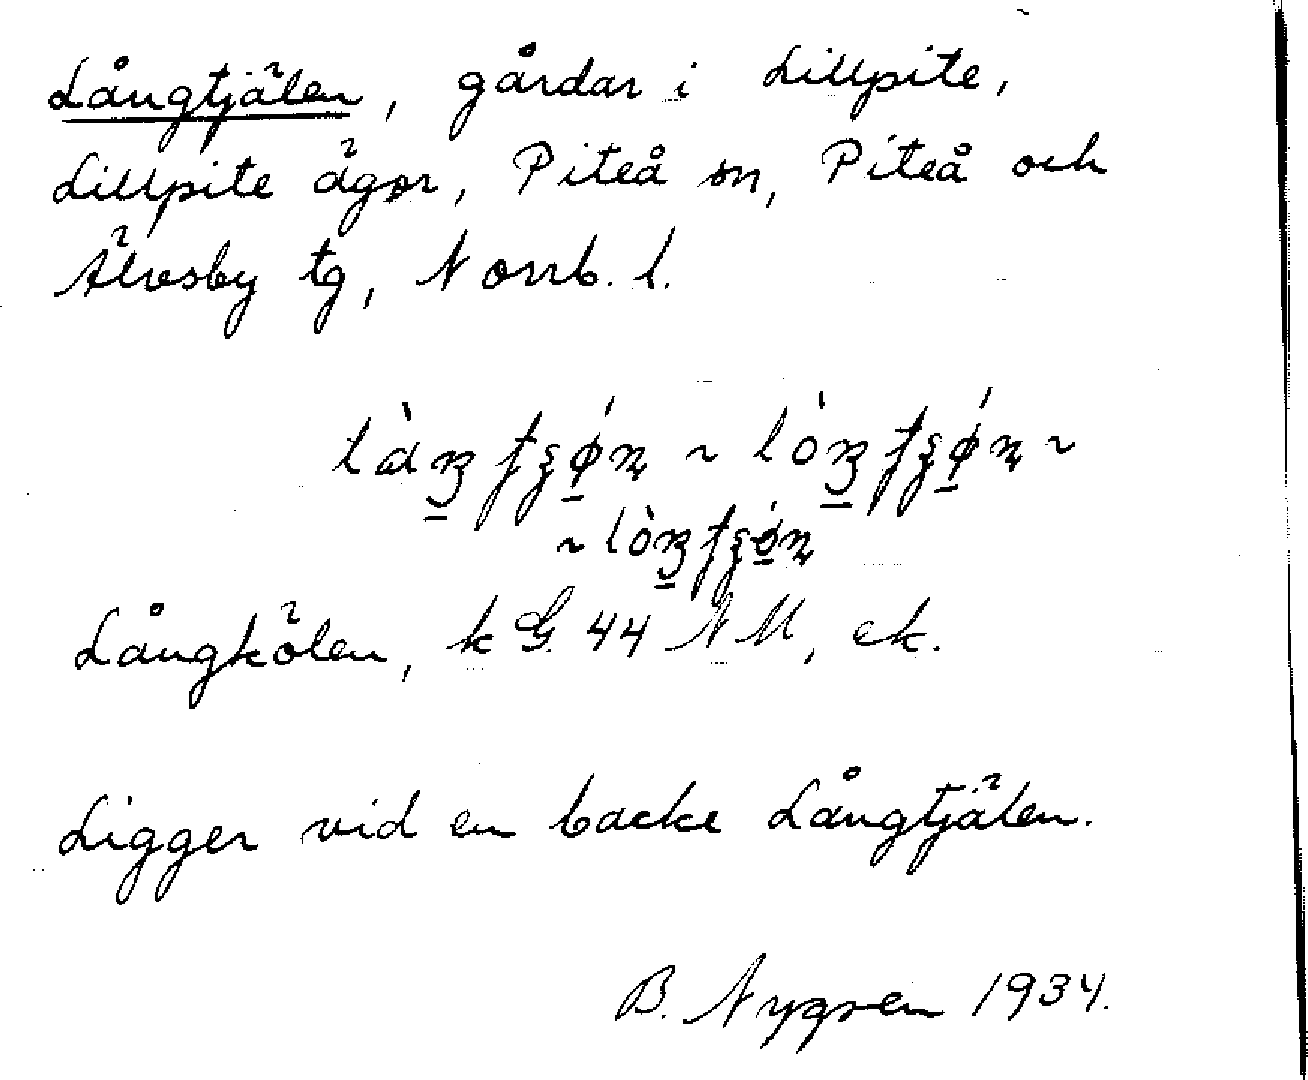 Långtjälen, gårdar i Lillpite,
Lillpite ägor, Piteå sn, Piteå och
Älvsby tg, Norrb. l.
Långkölen, k G. 44 NM, ek.
Ligger vid en backe Långtjälen.
B. Nygren 1934.